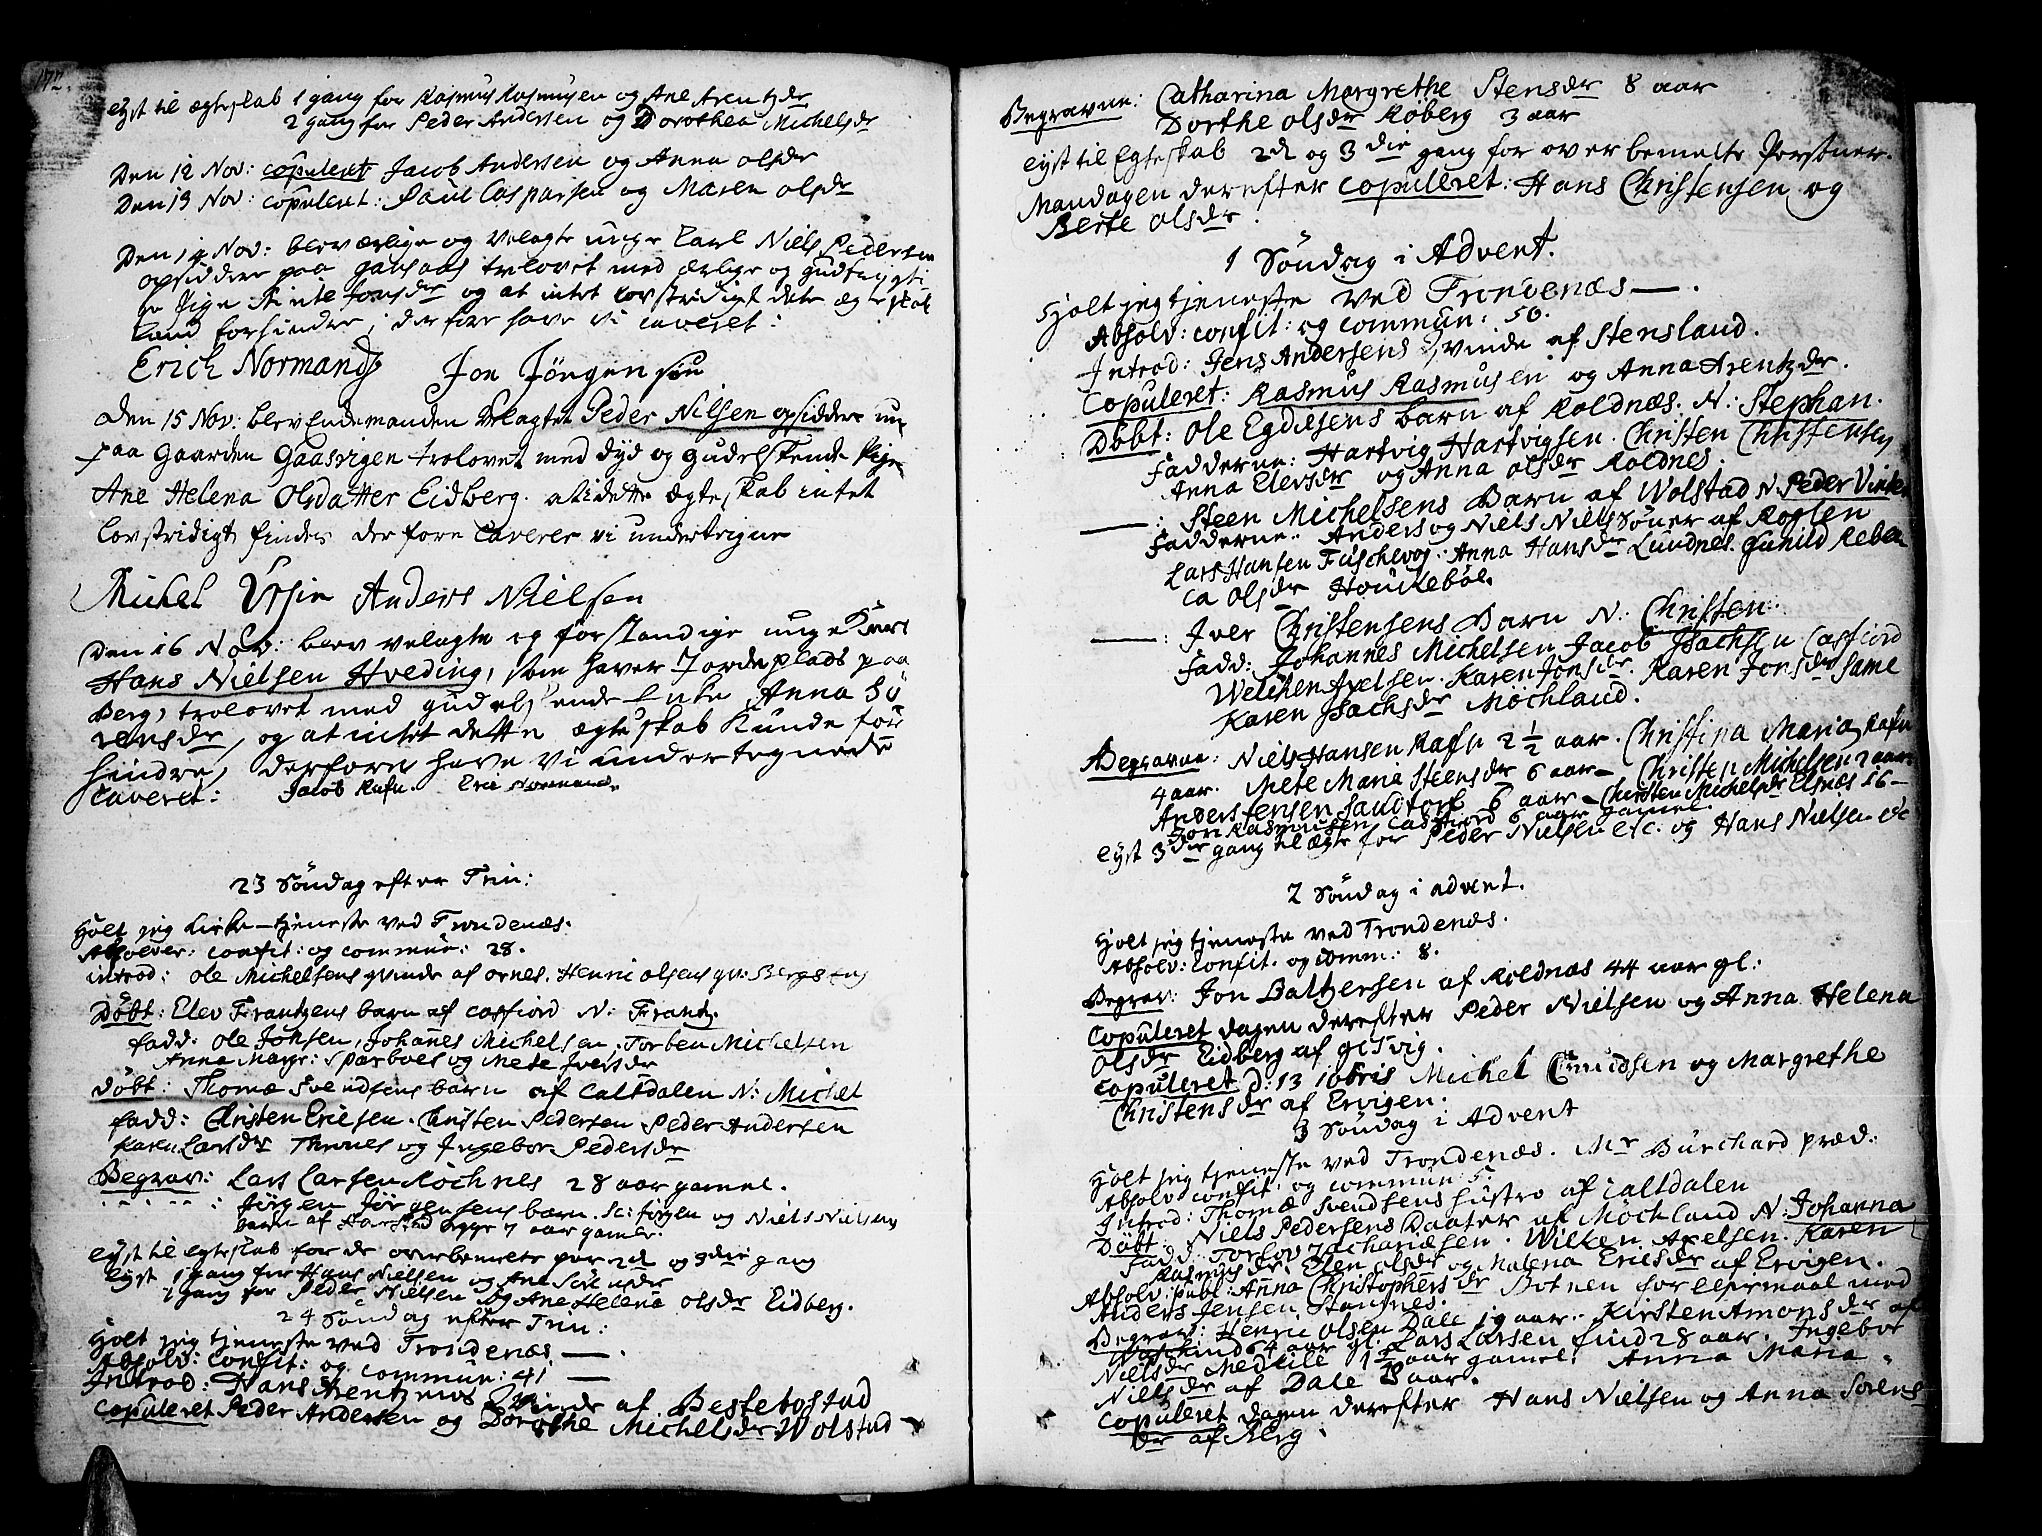 172.
lyst til ægteskab 1 gang for Rasmus Rasmusen og Ane Arentzdr
2 gang for Peder Andersen og Dorothea Michelsdr
Den 12 Nov: copuleret Jacob Andersen og Anna olsdr
Den 13 Nov: copuleret: Paul Caspersen og Maren olsdr
Den 14 Nov: blev ærlige og velagte unge Carl Niels Pedersen
opsiddere paa gausaas trolovet med ærlige og gudfrygti
ge Pige Jonsdr og at intet lovstridigt dette ægteskab
kand forhindre, derfore have vi caveret:
Erich Normand Jon Jörgensön
Den 15 Nov: blev Endemanden Velagte Peder Nilsen opsiddere
paa Gaarden Gaasvigen trolovet med dyd og gudelskende Pige
Ane Helena Olsdatter Eidberg. at i dette ægteskab intet
lovstridigt findes derfore Caverer vi undertegne
Michel Ursin Anders Nielsen
Den 16 Nov: blev velagte og forstandige unge Karl
Hans Nielsen Hveding, som haver Jordeplads paa
Berg, trolovet med gudelskende Enke Anna Sö
rensdr, og at intet dette ægteskab Kunde for
hindre, derforn have vi undertegnede
Caveret: Jacob Rafn. Eric Normand.
23 Söndag efter Trin:
Holt jeg kirke-tjeneste ved Trondenæs.
Absolver: confit: og commun: 28.
introd: ole Michelsens qvinde af ornes. Henric olsens qv: Bergseng
Döbt: Elev Frantzens barn af casfiord N: Frantz.
fadd: ole Johsen, Johanes Michelsen. Torben Michelsen
Anna Margr: Sparboes og Mete Iversdr
Döbt: Thomæ Svendsens barn af Caltdalen N: Michel
fadd: Christen Ericsen. Christen Pedersen Peder Andersen
Karen Larsdr Thrones og Ingebor Pedersdr
Begrav: Lars Larsen Röchnes 28 aar gamel.
: Jörgen Jörgensens barn. sc: Jörgen og Niels Nielsens
barn af Harstad begge 7 aar gamle.
lyst til egteskab for de overbemelte par 2d og 3die gang
lyst 1 gang for Hans Nielsen og Ane Sörensdr
1 gang for Peder Nielsen og Ane Helena olsdr Eidberg.
24 Söndag efter Trin:
Holt jeg tjeneste ved Trondenæs —.
Absolv: confit: og commun: 41 —
Introd: Hans Arentzens Qvinde af Bestebostad
copuleret Peder Andersen og Dorothe Michelsdr Wolstad
Begravne: Catharina Margrethe Stensdr 8 aar
Dorthe olsdr Röberg 3 aar
lyst til Egteskab 2d og 3die gang for overbemelte Personer.
Mandagen derefter copuleret: Hans Christensen og
Berte olsdr.
1 Söndag i Advent.
Holt jeg tjeneste ved Trondenæs —.
Absolv: confit: og commun: 50.
Introd: Jens Andersens Qvinde af Stensland.
Copuleret: Rasmus Rasmusen og Anna Arentzdr.
Döbt: Ole Egdiesens barn af Roldnæs. N: Stephan.
Fadderne: Hartvig Hartvigsen. Christen Christensen
Anna Elevsdr og Anna olsdr Roldnes.
—: Steen Michelsens Barn af Wolstad N: Peder Vinter
Fadderne: Anders og Niels Niels Söner af Rogien
Lars Hansen Fuschevog. Anna Hansdr Lundnes. Gunild Rebec
ca Olsdr Houkeböe.
—: Iver Christensens Barn N: Christen.
Fadd: Johannes Michelsen Jacob Isachsen Casfiord
Welchen Axelsen. Karen Jonsdr. Karen Jonsdr same
Karen Isachsdr Möchland.
Begravne: Niels Hansen Rafn 2½ aar. Christina Maria Rafn
4 aar. Mete Marie Steensdr 6 aar – Christen Michelsen 2 aar
Anders Jensen Sandtorf 6 aar – Christen Michelsdr Elsnæs 16 –
Jon Rasmussen Casfiord 6 aar gamel.
lyst 3die gang til ægte for Peder Nielsen etc. og Hans Nielsen etc
2 Söndag i advent.
Holt jeg tjeneste ved Trondenæs.
Absolv: confit. og comm: 8.
Begrav: Jon Baltzersen af Roldnæs 44 aar gl:
Copuleret dagen derefter Peder Nielsen og Anna Helena
olsdr Eidberg af gaasvig.
copuleret d: 13 10bris Michel Cnudsen og Margrethe
Christensdr af Ervigen.
3 Söndag i Advent
Holt jeg tjeneste ved Trondenæs. Mr Burchard præd:
Absolv: confit: og commun 5.
Introd: Thomæ Svendsens hustro af Caltdalen
Döbt: Niels Pedersens Daater af Möchland N: Johanna
fadd: Torlov Zachariæsen. Wilken Axelsen. Karen
Rasmusdr. Elen olsdr og Malena Ericsdr af Ervigen.
Absolv: publ: Anna Christophersdr Botnen for leiermaal med
Anders Jensen Stangnes.
Begrav: Henric Olsen Dale 19 aar. Kirsten Amonsdr af
64 aar gl: Lars Larsen 28 aar. Ingebor
Nielsdr Medkile 1½ aar gamel. Anna Maria
Nielsdr af Dale 8 aar.
copuleret dagen derefter Hans Nielsen og Anna Sörens
dr af Berg.